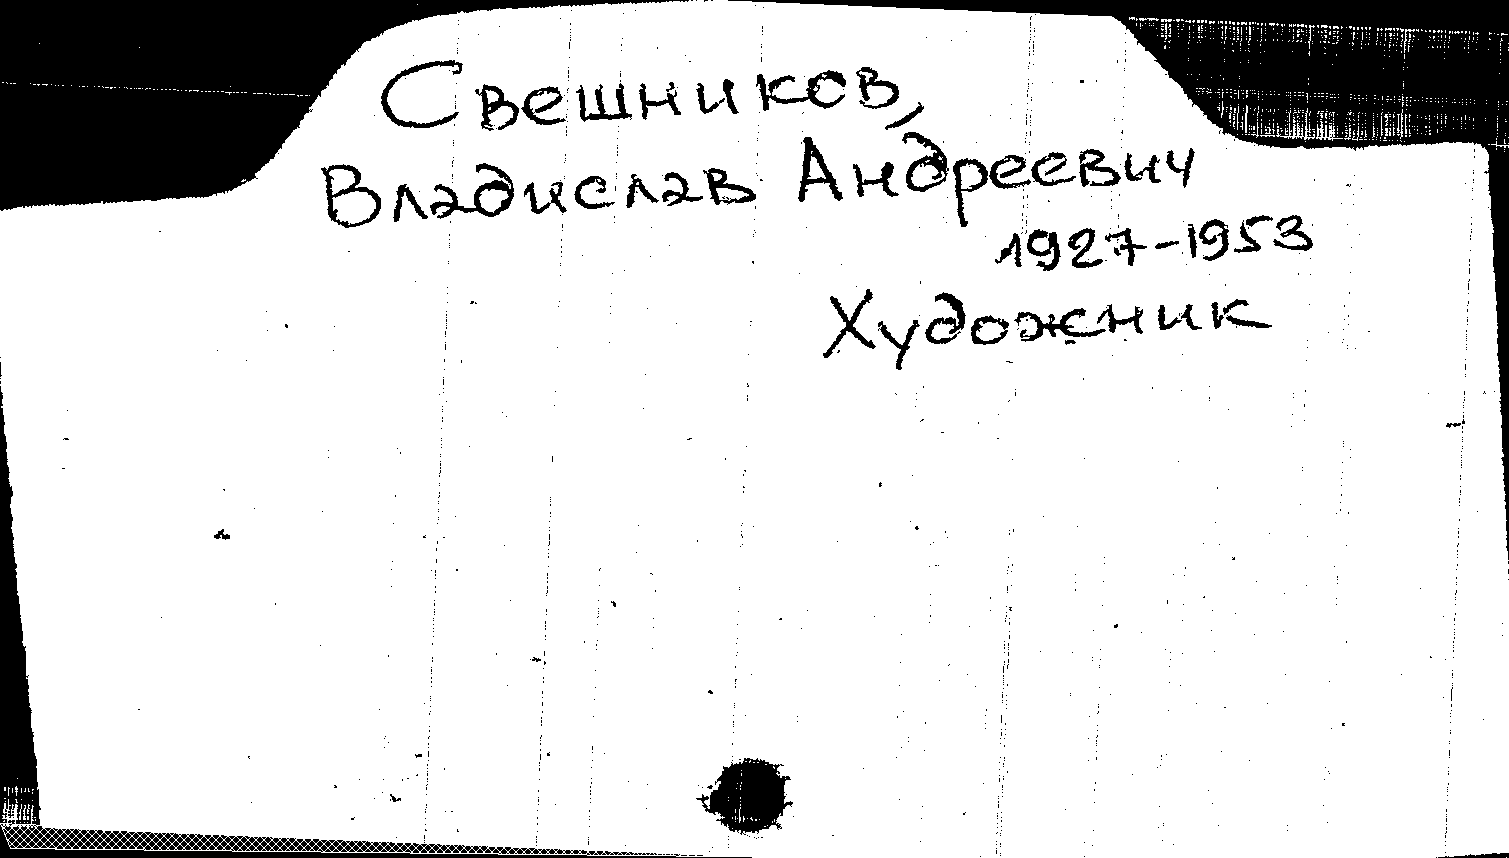 Свешников,
Владислав Андреевич
1927-1953
Художник